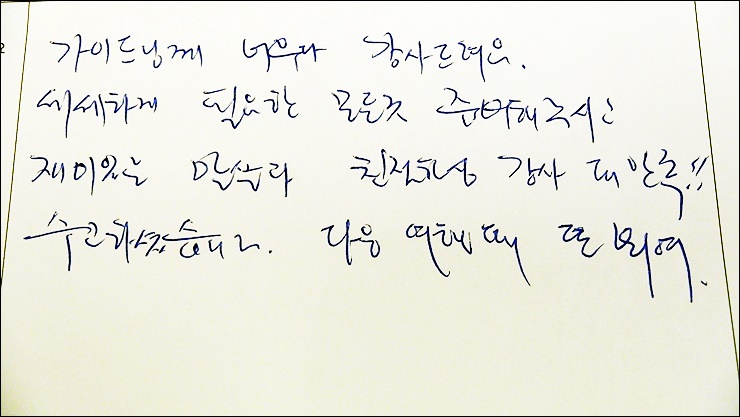 가이드님께 너무나 감사드려요.
세세하게 필요한 모든것 준비해주시고
재미있는 말씀과 친절하심 감사 대만족!!
수고하셨습니다. 다음 여행때 또 뵈여.